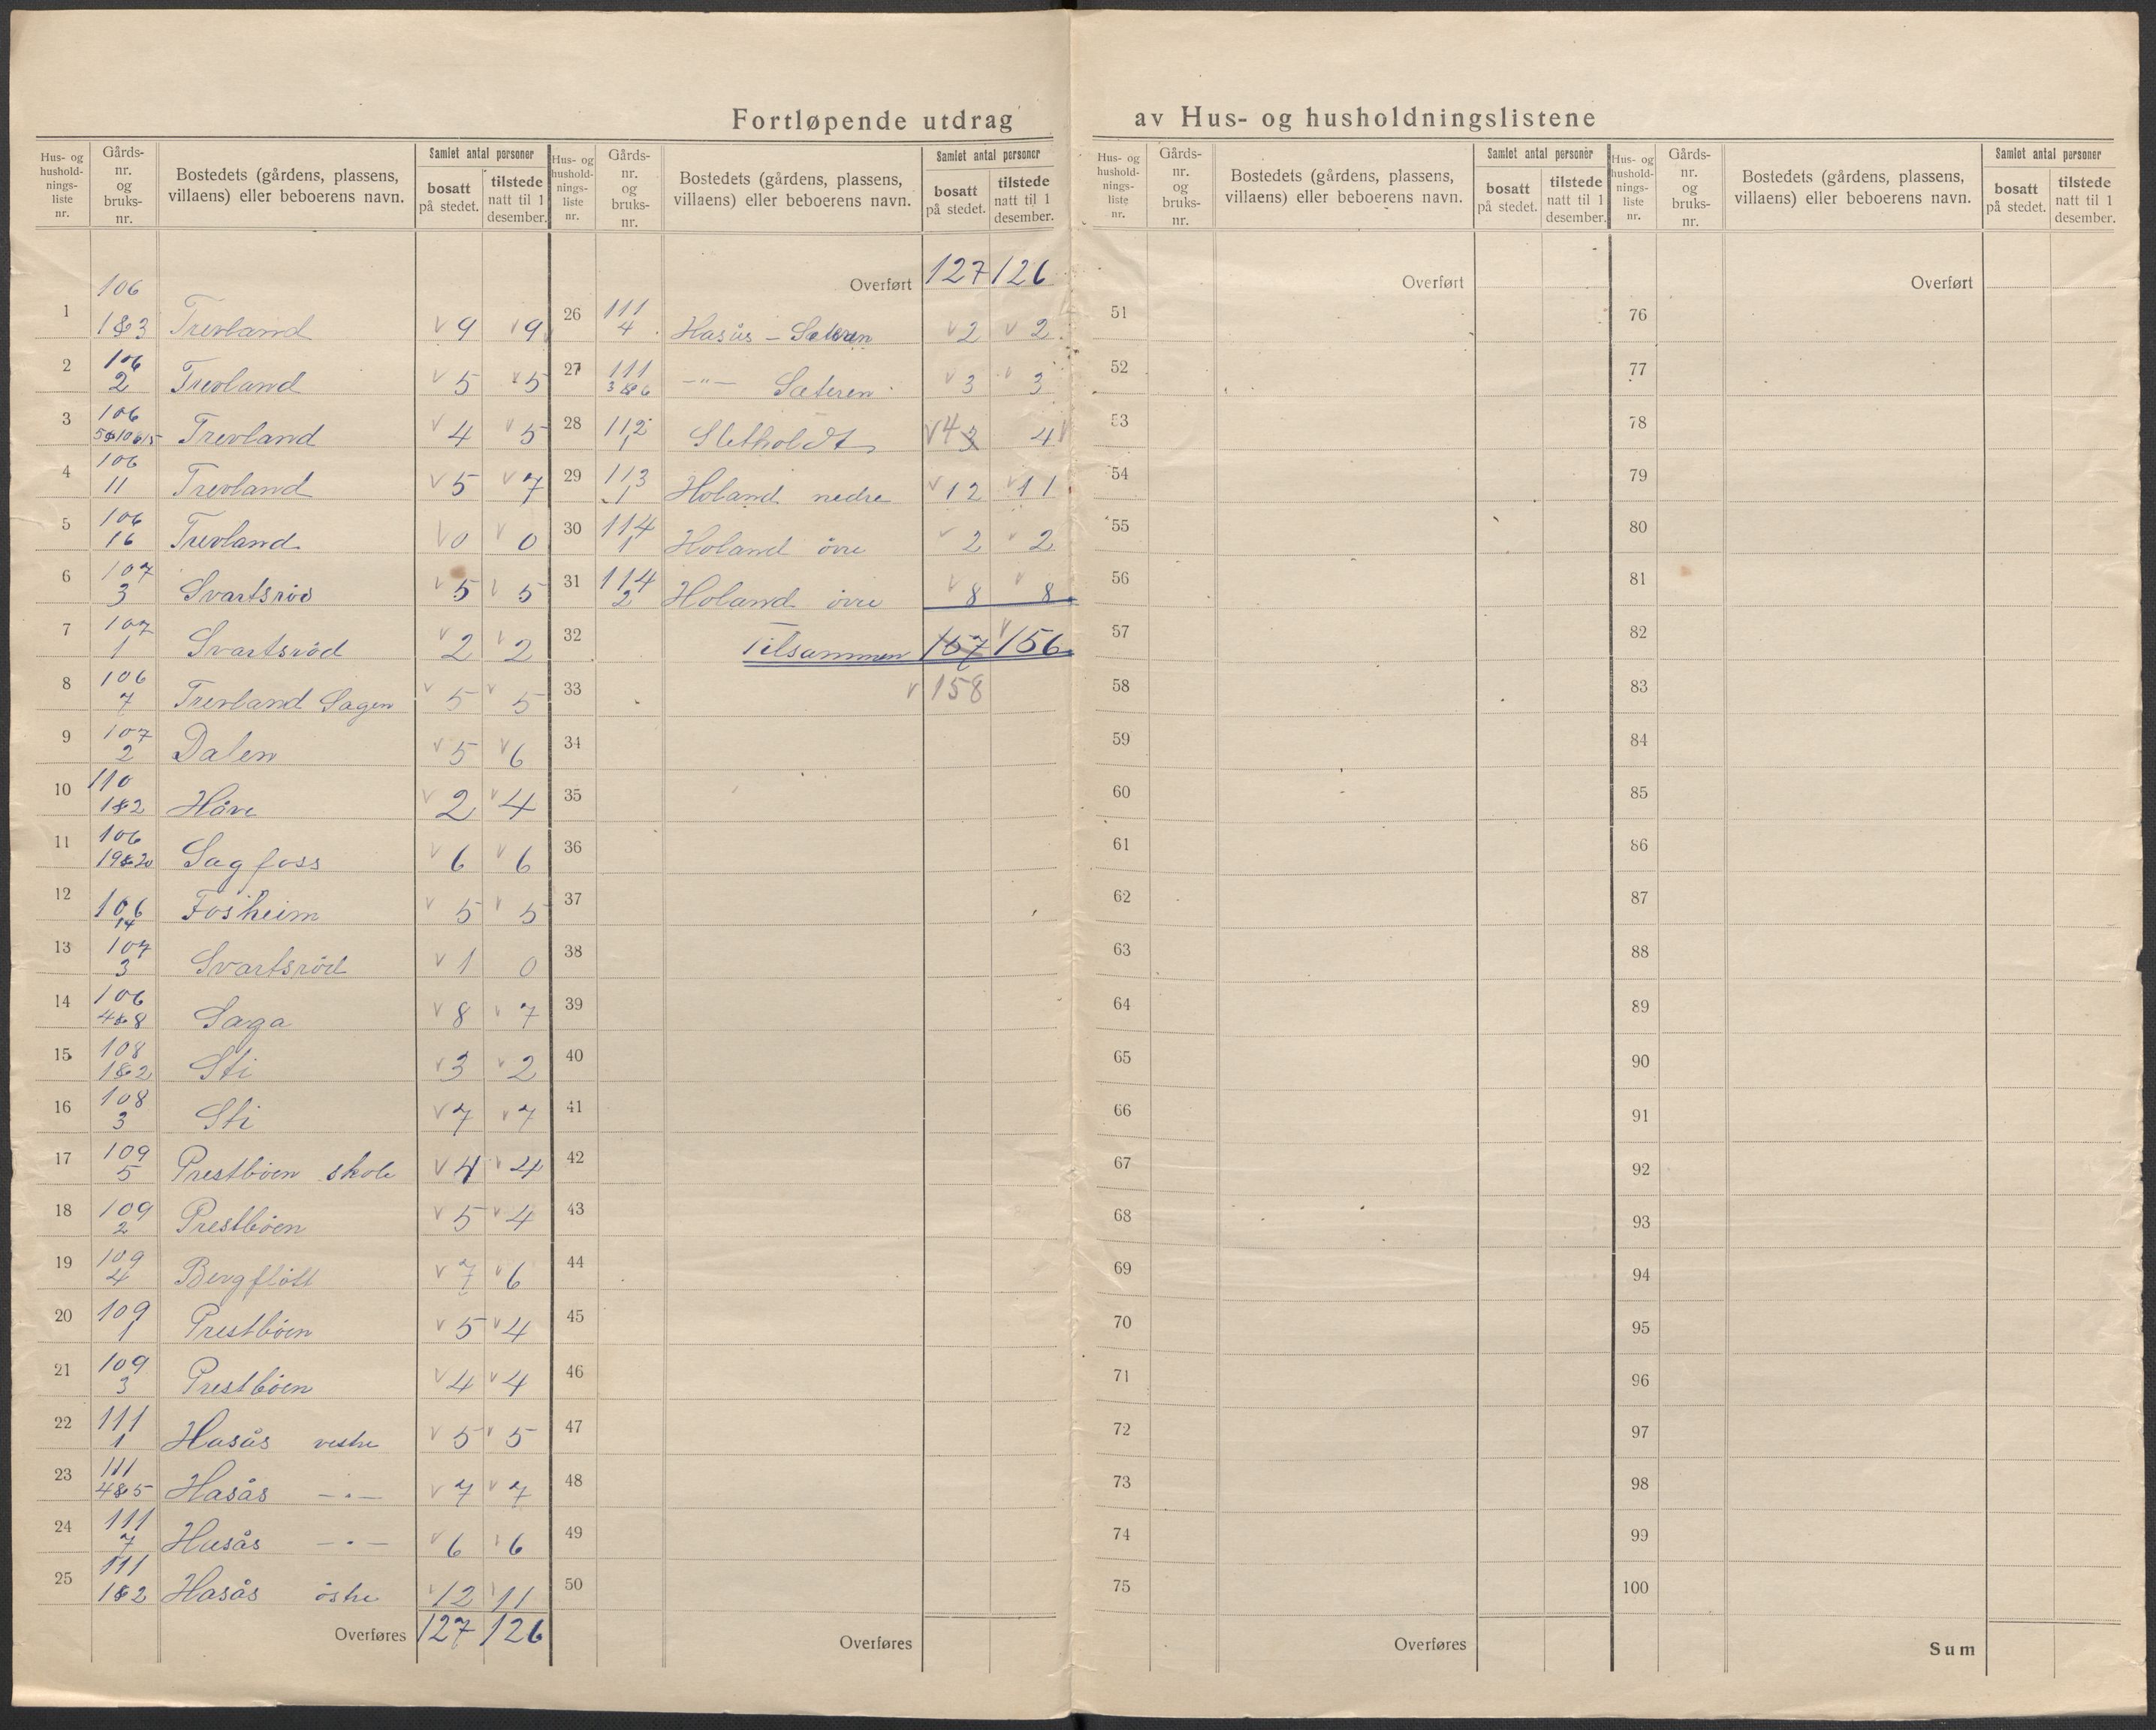 Fortløpende utdrag av Hus- og husholdningslistene
Hus- og hushold-nings-liste nr. | Gårds-nr. og bruks-nr. | Bostedets (gårdens, plassens, villaens) eller beboerens navn. | Samlet antal personer | bosatt på stedet. | tilstede natt til 1 desember.
1 106 1&3 Trevland v 9 v 9
2 106 2 Trevland v 5 v 5
3 106 5&10&15 Trevland v 4 v 5
4 106 11 Trevland v 5 v 7
5 106 16 Trevland v 0 v 0
6 107 3 Svartsrød v 5 v 5
7 107 1 Svartsrød v 2 v 2
8 106 7 Trevland Sagen v 5 v 5
9 107 2 Dalen v 5 v 6
10 110 1&2 Håve v 2 v 4
11 106 19&20 Sagfoss v 6 v 6
12 106 14 Fosheim v 5 v 5
13 107 3 Svartsrød v 1 0
14 106 4&8 Saga v 8 v 7
15 108 1&2 Sti v 3 v 2
16 108 3 Sti v 7 v 7
17 109 5 Prestbøen skole v 4 v 4
18 109 2 Prestbøen v 5 v 4
19 109 4 Bergfløtt v 7 v 6
20 109 1 Prestbøen v 5 v 4
21 109 3 Prestbøen v 4 v 4
22 111 1 Hasås vestre v 5 v 5
23 111 4&5 Hasås —"— v 7 v 7
24 111 7 Hasås —"— v 6 v 6
25 111 1&2 Hasås östre v 12 v 11
Overføres 127 126
Hus- og hushold-nings-liste nr. | Gårds-nr. og bruks-nr. | Bostedets (gårdens, plassens, villaens) eller beboerens navn. | Samlet antal personer | bosatt på stedet. | tilstede natt til 1 desember.
Overført 127 126
26 111 4 Hasås – Sæteren v 2 v 2
27 111 3&6 —"— Sæteren v 3 v 3
28 112 1 Sletholdt v 4 3 4 v
29 113 1 Holand nedre v 12 v 11
30 114 1 Holand övre v 2 v 2
31 114 2 Holand övre v 8 v 8
32 Tilsammen 157 v 156
33 v 158
34
35
36
37
38
39
40
41
42
43
44
45
46
47
48
49
50
Overføres
Hus- og hushold-nings-liste nr. | Gårds-nr. og bruks-nr. | Bostedets (gårdens, plassens, villaens) eller beboerens navn. | Samlet antal personer | bosatt på stedet. | tilstede natt til 1 desember.
Overført
51
52
53
54
55
56
57
58
59
60
61
62
63
64
65
66
67
68
69
70
71
72
73
74
75
Overføres
Hus- og hushold-nings-liste nr. | Gårds-nr. og bruks-nr. | Bostedets (gårdens, plassens, villaens) eller beboerens navn. | Samlet antal personer | bosatt på stedet. | tilstede natt til 1 desember.
Overført
76
77
78
79
80
81
82
83
84
85
86
87
88
89
90
91
92
93
94
95
96
97
98
99
100
Sum